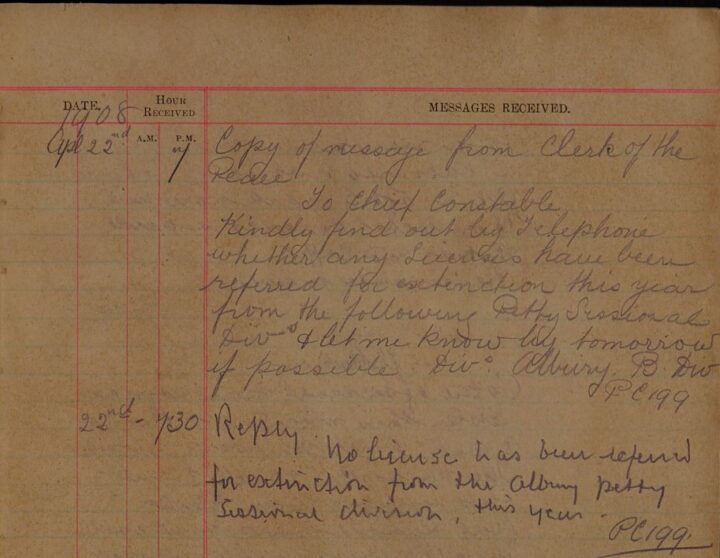 DATE. HOUR RECEIVED MESSAGES RECEIVED.
1908 A.M. P.M.
Apl 22nd 7 Copy of message from Clerk of the
Peace
To Chief Constable
Kindly find out by Telephone
whether any Licenses have been
referred for extinction this year
from the following Petty Sessional
Divns & let me know by tomorrow
if possible Divn. Albury. B. Div
PC 199
22nd - 7.30 Reply. No license has been referred
for extinction from the Albury petty
Sessional division, this year.
PC 199.